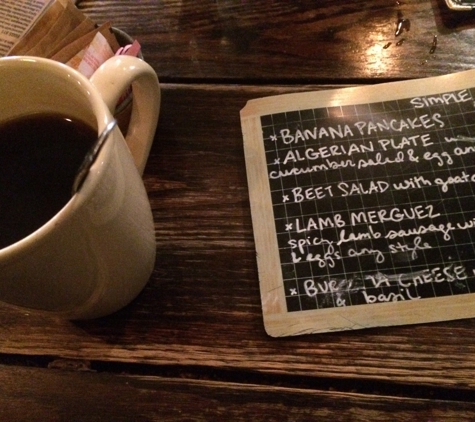 SIMPLE
* BANANA PANCAKES
* ALGERIAN PLATE w
cucumber salad & egg an
* BEET SALAD with goat c
* LAMB MERGUEZ
spicy lamb sausage wi
& eggs any style
* CHEESE
& basil